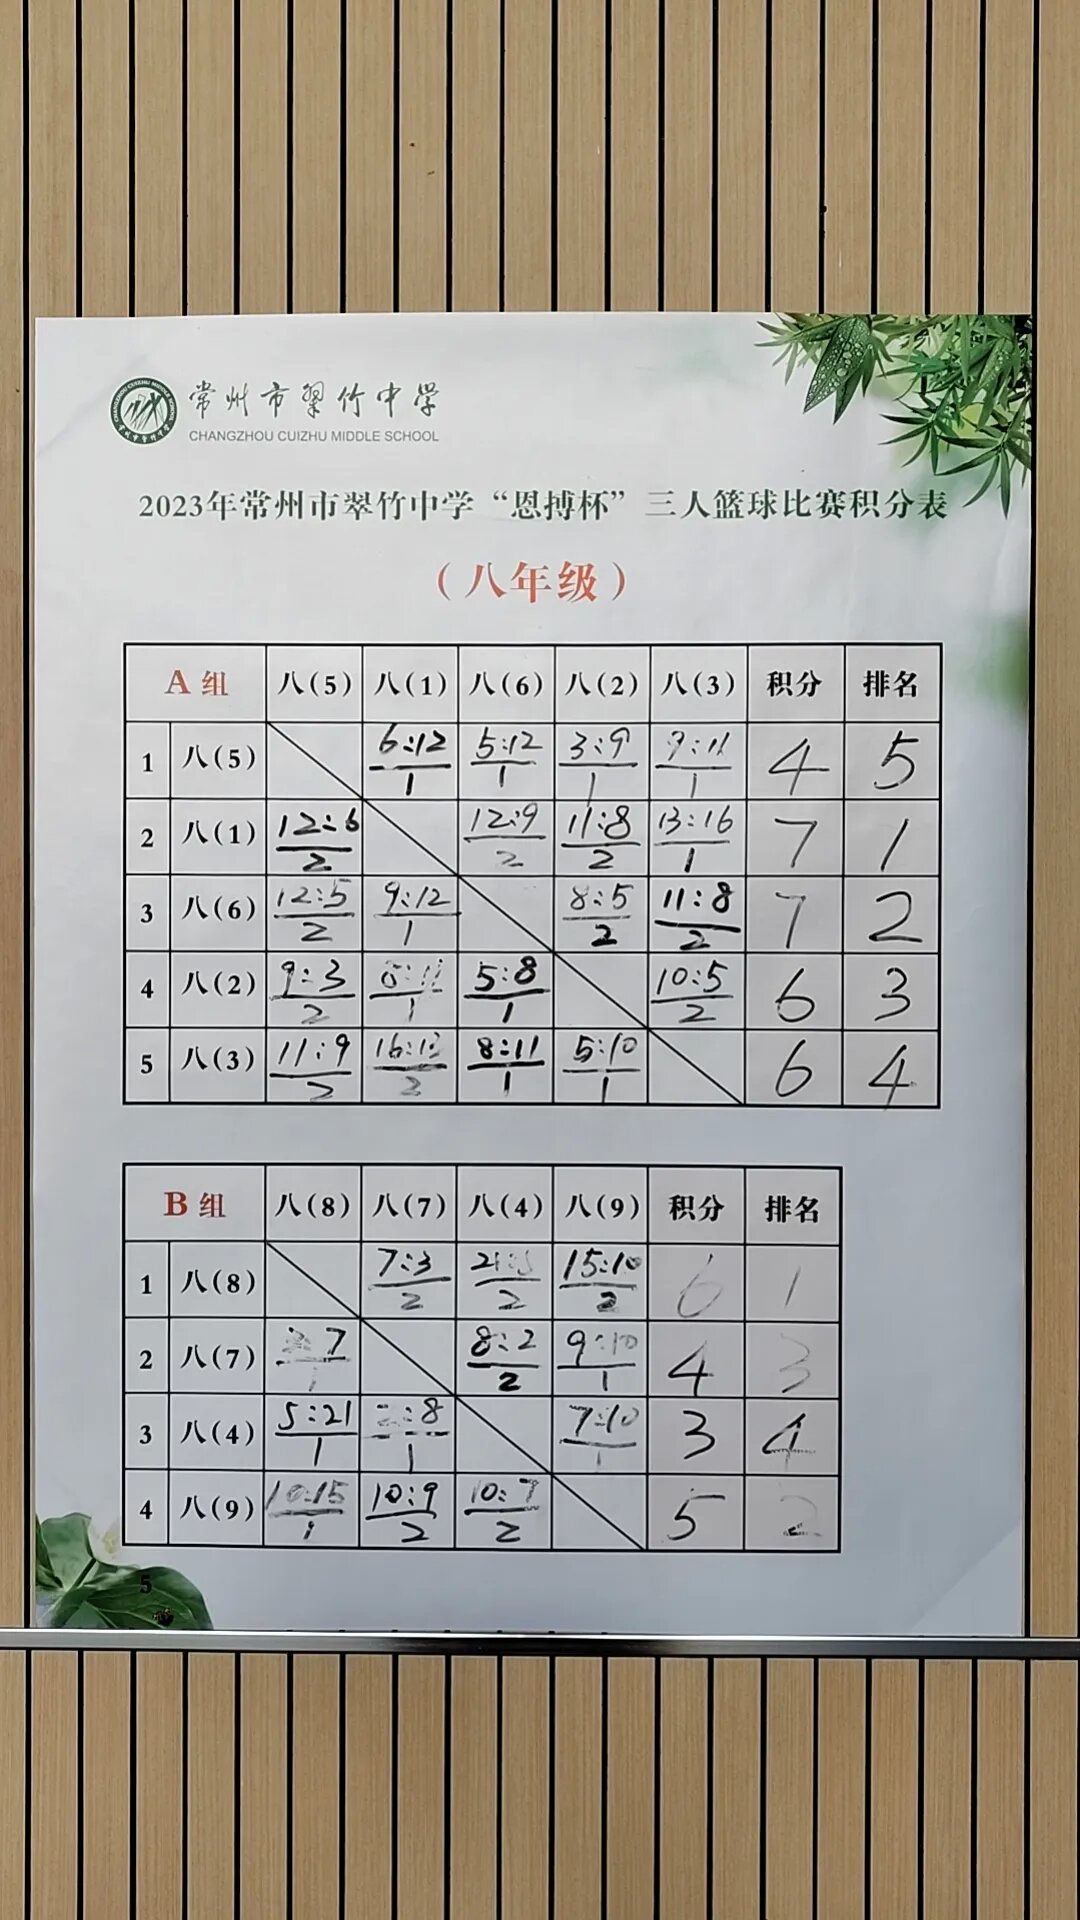 常州市翠竹中学
CHANGZHOU CUIZHU MIDDLE SCHOOL
2023年常州市翠竹中学“恩搏杯”三人篮球比赛积分表
（八年级）
A组 八(5) 八(1) 八(6) 八(2) 八(3) 积分 排名
1 八(5) 6:12 5:12 3:9 9:11 4 5
1 1 1 1
2 八(1) 12:6 12:9 11:8 13:16 7 1
2 2 2 1
3 八(6) 12:5 9:12 8:5 11:8 7 2
2 1 2 2
4 八(2) 9:3 8:11 5:8 10:5 6 3
2 1 1 2
5 八(3) 11:9 16:13 8:11 5:10 6 4
2 2 1 1
B组 八(8) 八(7) 八(4) 八(9) 积分 排名
1 八(8) 7:3 21:5 15:10 6 1
2 2 2
2 八(7) 3:7 8:2 9:10 4 3
1 2 1
3 八(4) 5:21 2:8 7:10 3 4
1 1 1
4 八(9) 10:15 10:9 10:7 5 2
1 2 2
5